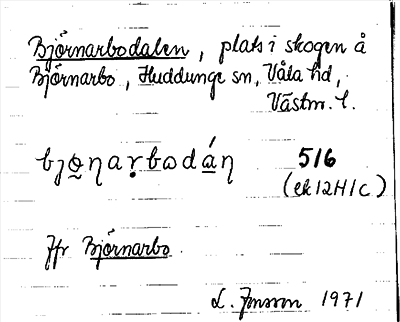 Björnarbodalen, plats i skogen å
Björnarbo, Huddunge sn, Våla hd,
Västm. l.
bjo̰ŋaṛbωdá̱ŋ 516
(ek 12H1C)
Jfr Björnarbo.
L. Jonsson 1971